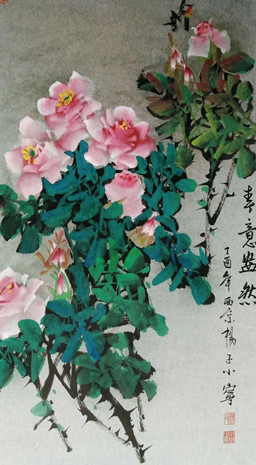 春意盎然
丁酉年西京楊子小寧